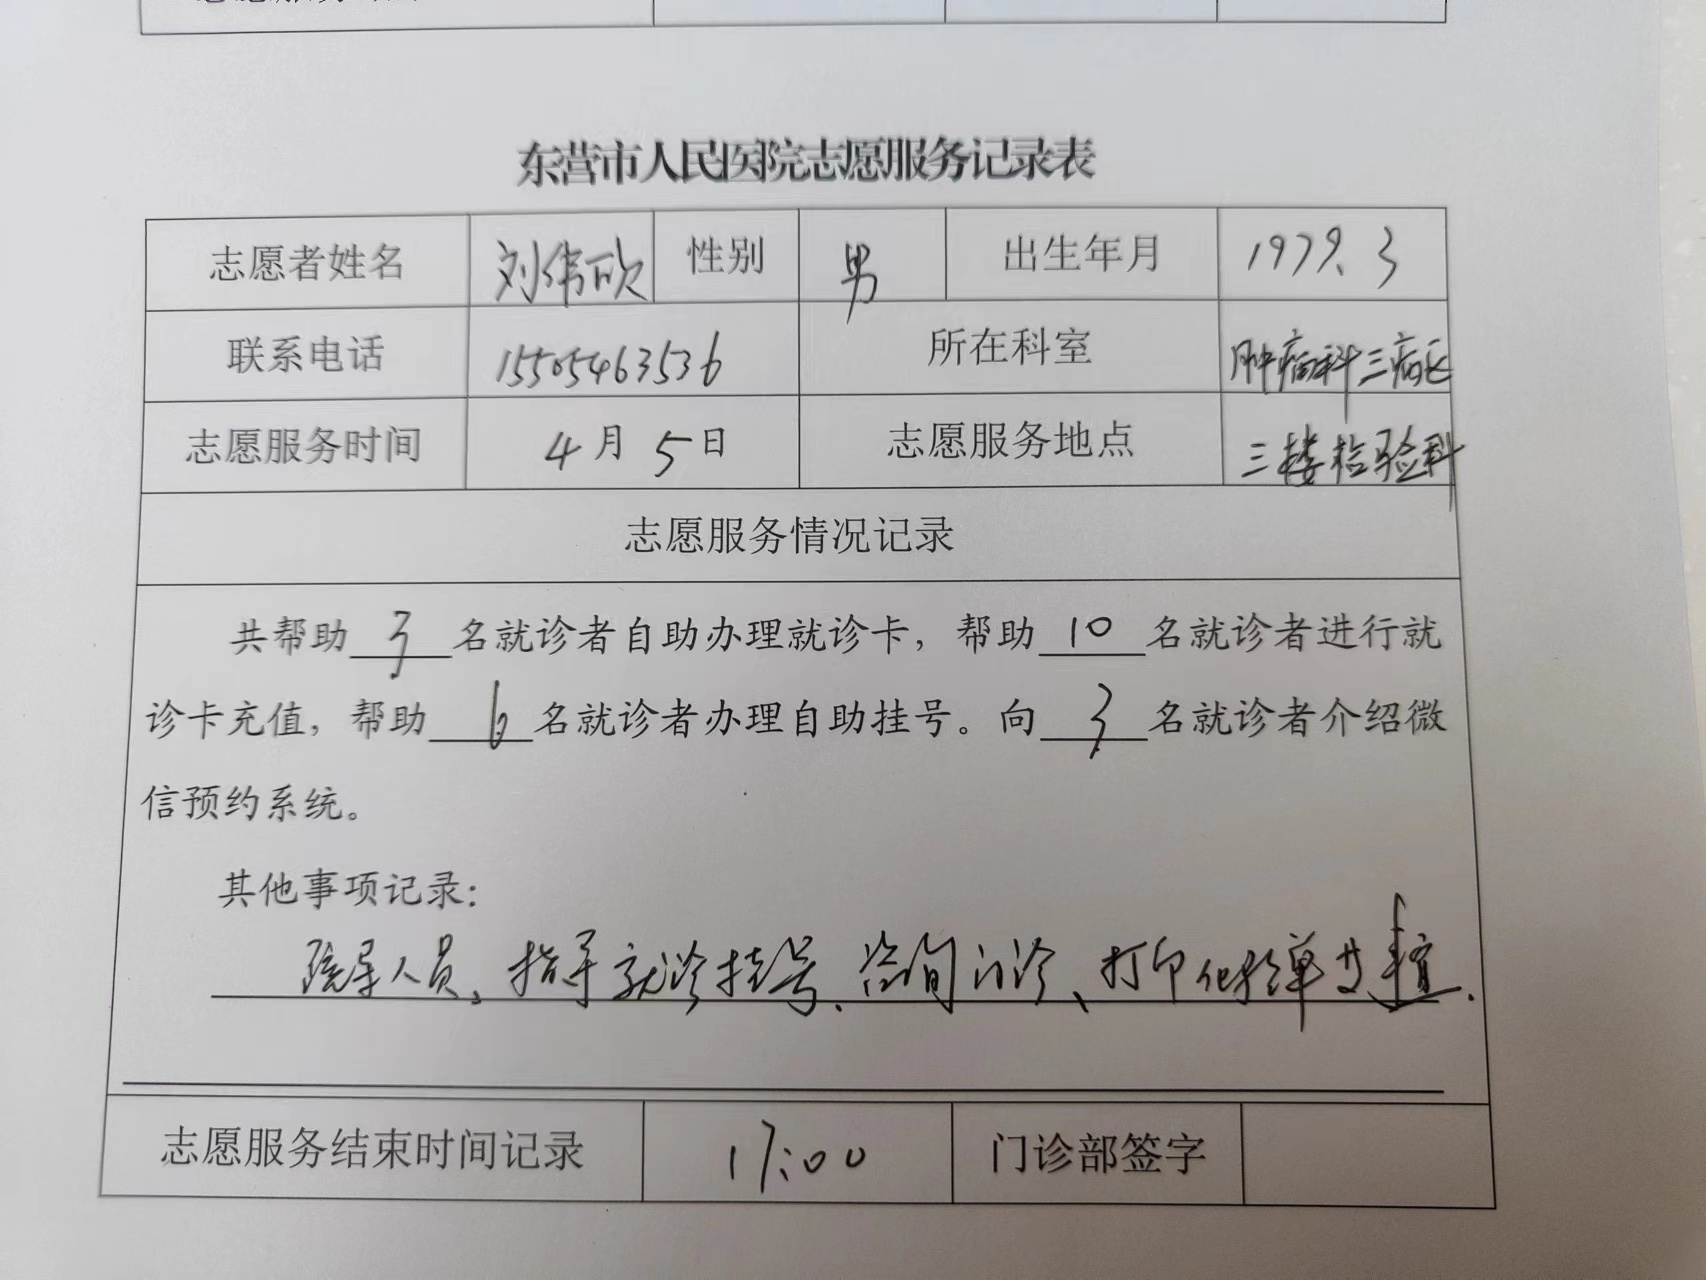 东营市人民医院志愿服务记录表
志愿者姓名 刘伟欣 性别 男 出生年月 1979.3
联系电话 15505463536 所在科室 肿瘤科三病区
志愿服务时间 4月5日 志愿服务地点 三楼检验科
志愿服务情况记录
共帮助 3 名就诊者自助办理就诊卡，帮助 10 名就诊者进行就
诊卡充值，帮助 6 名就诊者办理自助挂号。向 3 名就诊者介绍微
信预约系统。
其他事项记录：
人员、指导就诊挂号、咨询门诊、打印化验单
志愿服务结束时间记录 17:00 门诊部签字